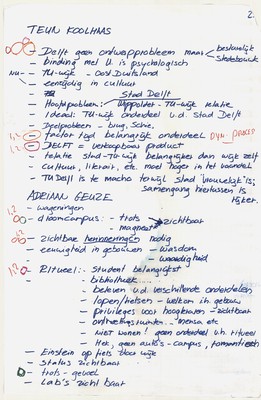 2.
TEUN KOOLHAAS
- Delft geen ontwerpprobleem maar bestuurlijk stedebouwk.
- binding met U. is psychologisch
NU - TU-wijk - Oost Duitsland
- eenzijdig in cultuur
- Stad Delft
- Hoofdprobleem: - TU-wijk relatie
- Ideaal: TU-wijk onderdeel v.d. Stad Delft
- Deelprobleem - brug, Schie.
- factor tijd belangrijk onderdeel dyn. proces
- DELFT = verkoopbaar product
- relatie stad-TU-wijk belangrijker dan wijk zelf
- cultuur, literair, etc. moet hoger in het vaandel
- TU Delft is te macho terwijl stad 'vrouwelijk' is;
samengang hiertussen is
ADRIAN GEUZE
1,2 - wageningen
- droomcampus: - trots zichtbaar
- magneet
- zichtbare herinneringen nodig
- eeuwigheid in gebouwen - wasdom
- waardigheid
1,2 - Ritueel: - Student belangrijkst
- bibliotheek
- beleven v.d. verschillende onderdelen
- lopen/fietsen - welkom in gebouw
- privileges voor hoogleraren - zichtbaar
- ontmoetingsruimten - mensa etc
- niet wonen! geen onderdeel v.h. ritueel
- Hek, geen auto's - campus, romantisch
- Einstein op fiets door wijk
- Status zichtbaar
- trots - gevoel
- Lab's zichtbaar